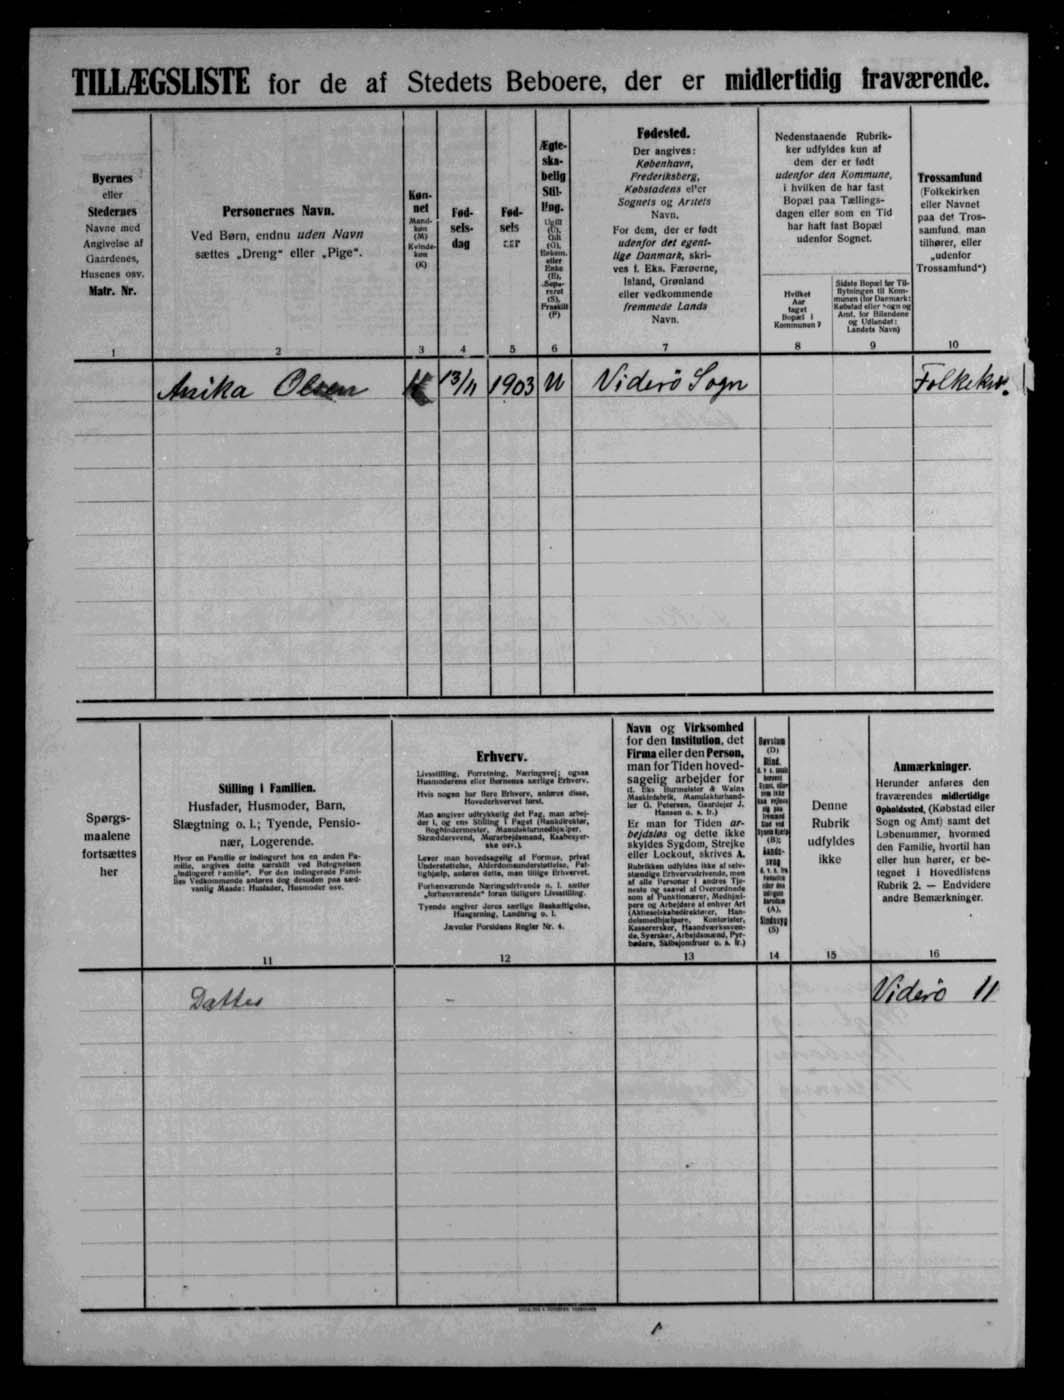 TILLÆGSLISTE for de af Stedets Beboere, der er midlertidig fraværende.
Byernes
eller
Stedernes
Navne med
Angivelse af
Gaardenes,
Husenes osv.
Matr. Nr.
1
Personernes Navn.
Ved Børn, endnu uden Navn
sættes „Dreng“ eller „Pige“.
2
Køn-
net
Mand-
køn
(M)
Kvinde-
køn
(K)
3
Fød-
sels-
dag
4
Fød-
sels
aar
5
Ægte-
ska-
belig
Stil-
ling.
Ugift
(U),
Gift
(G),
Enkem.
eller
Enke
(E),
Sepa-
reret
(S),
Fraskilt
(F)
6
Fødested.
Der angives:
København,
Frederiksberg,
Købstadens eller
Sognets og Amtets
Navn.
For dem, der er født
udenfor det egent-
lige Danmark, skri-
ves f. Eks. Færøerne,
Island, Grønland
eller vedkommende
fremmede Lands
Navn.
7
Nedenstaaende Rubrik-
ker udfyldes kun af
dem der er født
udenfor den Kommune,
i hvilken de har fast
Bopæl paa Tællings-
dagen eller som en Tid
har haft fast Bopæl
udenfor Sognet.
Hvilket
Aar
taget
Bopæl i
Kommunen?
8
Sidste Bopæl før Til-
flytningen til Kom-
munen (for Danmark:
Købstad eller Sogn og
Amt, for Bilandene
og Udlandet:
Landets Navn)
9
Trossamfund
(Folkekirken
eller Navnet
paa det Tros-
samfund, man
tilhører, eller
„udenfor
Trossamfund“)
10
Anika Olsen K 13/11 1903 U Viderö Sogn Folkekirk.
Spørgs-
maalene
fortsættes
her
Stilling i Familien.
Husfader, Husmoder, Barn,
Slægtning o. l.; Tyende, Pensio-
nær, Logerende.
Hvor en Familie er indlogeret hos en anden Fa-
milie, angives dette særskilt ved Betegnelsen
„indlogeret Familie“. For den indlogerede Fami-
lies Vedkommende anføres dog desuden paa sæd-
vanlig Maade: Husfader, Husmoder osv.
11
Erhverv.
Livsstilling, Forretning, Næringsvej; ogsaa
Husmoderens eller Børnenes særlige Erhverv.
Hvis nogen har flere Erhverv, anføres disse,
Hovederhvervet først.
Man angiver udtrykkelig det Fag, man arbej-
der i, og ens Stilling i Faget (Bankdirektør,
Bogbindermester, Manufakturmedhjælper,
Skræddersvend, Murarbejdsmand, Kaabesyer-
ske osv.).
Lever man hovedsagelig af Formue, privat
Understøttelse, Alderdomsunderstøttelse, Fat-
tighjælp, anføres dette, man tillige Erhvervet.
Forhenværende Næringsdrivende o. l. sætter
„forhenværende“ foran tidligere Livsstilling.
Tyende angiver deres særlige Beskæftigelse,
Husgerning, Landbrug o. l.
Jævnfør Forsidens Regler Nr. 4.
12
Navn og Virksomhed
for den Institution, det
Firma eller den Person,
man for Tiden hoved-
sagelig arbejder for
(f. Eks Burmeister & Wains
Maskinfabrik, Manufakturhand-
ler G. Petersen, Gaardejer J.
Hansen o. s. fr.)
Er man for Tiden ar-
bejdsløs og dette ikke
skyldes Sygdom, Strejke
eller Lockout, skrives A.
Rubrikken udfyldes ikke af selv-
stændige Erhvervsdrivende, men
af alle Personer i andres Tje-
neste og saavel af Overordnede
som af Funktionærer, Medhjæl-
pere og Arbejdere af enhver Art
(Aktieselskabsdirektører, Han-
delsmedhjælpere, Kontorister,
Kassererske, Haandværkssven-
de, Syersker, Arbejdsmænd, Fyr-
bødere, Skibsjomfruer o. s. fr.)
13
Døvstum
(D)
Blind,
(B);
Aands-
svag
(A),
Sindssyg
(S)
14
Denne
Rubrik
udfyldes
ikke
15
Anmærkninger.
Herunder anføres den
fraværendes midlertidige
Opholdssted, (Købstad eller
Sogn og Amt) samt det
Løbenummer, hvormed
den Familie, hvortil han
eller hun hører, er be-
tegnet i Hovedlistens
Rubrik 2. — Endvidere
andre Bemærkninger.
16
Datter - Viderö 11